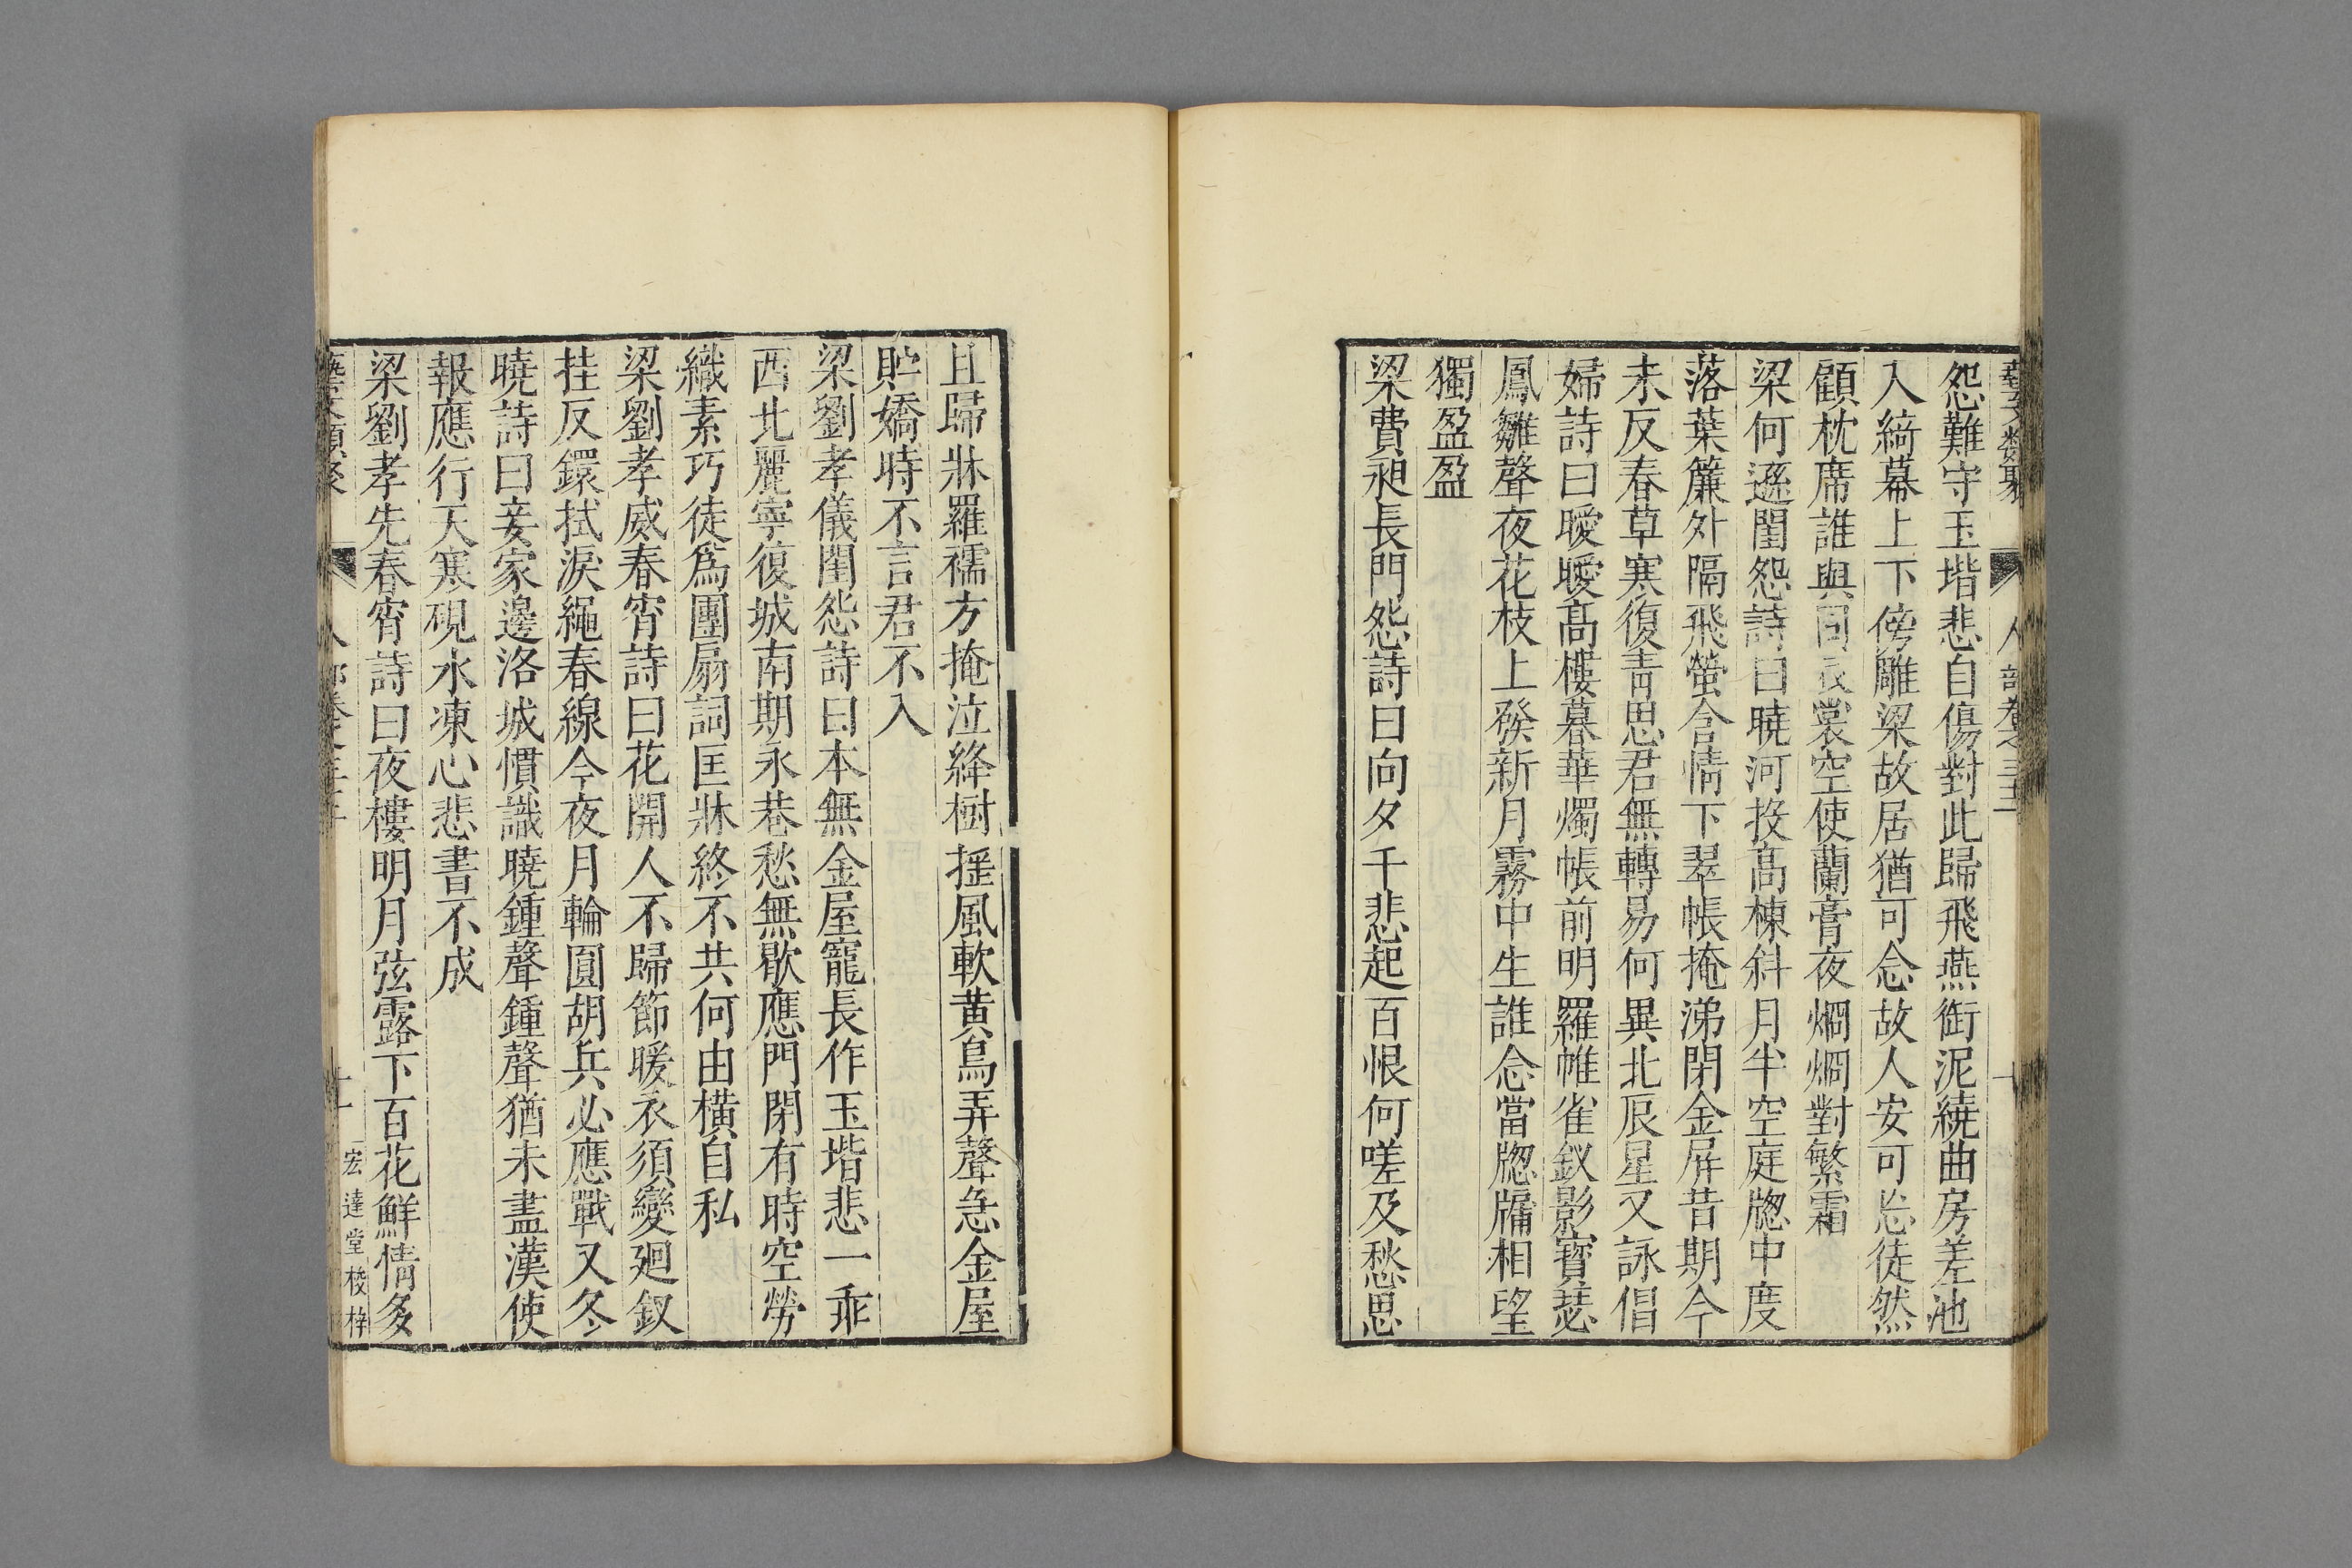 藝文類聚 人部卷之三十二 十
怨難守玉堦悲自傷對此歸飛燕銜泥繞曲房差池
入綺幕上下傍雕梁故居猶可念故人安可忘徒然
顧枕席誰與同衣裳空使蘭膏夜烱烱對繁霜
梁何遜閨怨詩曰曉河投高棟斜月半空庭牕中度
落葉簾外隔飛螢含情下翠帳掩涕閉金屏昔期今
未反春草寒復青思君無轉易何異北辰星又詠倡
婦詩曰曖曖髙樓暮華燭帳前明羅帷雀釵影寳瑟
鳳雛聲夜花枝上發新月霧中生誰念當牕牖相望
獨盈盈
梁費昶長門怨詩曰向夕千悲起百恨何嗟及愁思
且歸牀羅襦方掩泣絳樹揺風軟黄鳥弄聲急金屋
貯嬌時不言君不入
梁劉孝儀閨怨詩曰本無金屋寵長作玉堦悲一乖
西北麗寧復城南期永巷愁無歇應門閉有時空勞
織素巧徒爲團扇詞匡牀終不共何由横自私
梁劉孝威春宵詩曰花開人不歸節暖衣須變廻釵
挂反鐶拭淚繩春線今夜月輪圓胡兵必應戰又冬
曉詩曰妾家邊洛城慣識曉鍾聲鍾聲猶未盡漢使
報應行天寒硯水凍心悲書不成
梁劉孝先春宵詩曰夜樓明月弦露下百花鮮情多
藝文類聚 人部卷之三十二 十一 宏達堂校梓